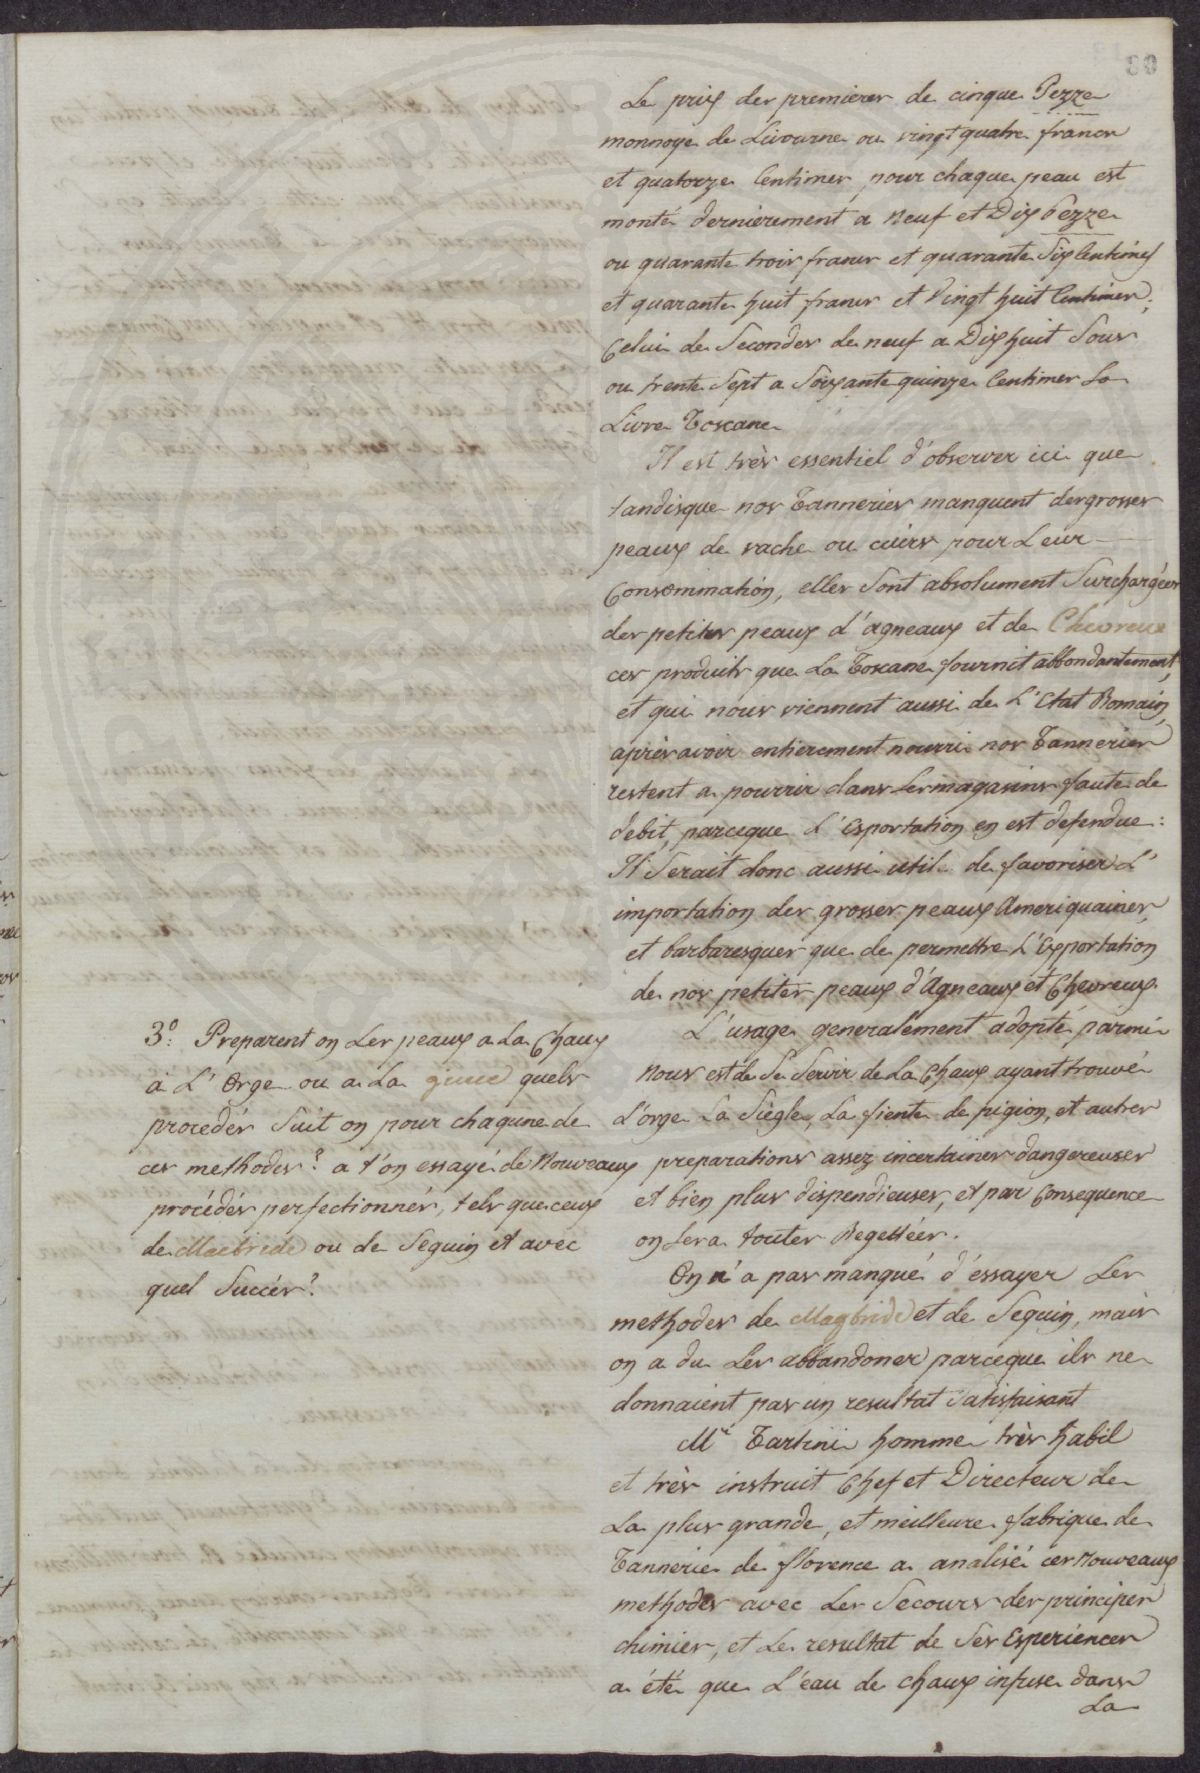 80
Le prix des premieres de cinque Pezze
monnoye de Livourne ou vingt quatre francs
et quatorze Centimes pour chaque peau est
monté dernierement a neuf et Dix Pezze
ou quarante trois francs et quarante Six Centimes
et quarante huit francs et Vingt huit Centimes;
Celui de Secondes de neuf a Dix huit Sous
ou trente Sept a Soixante quinze Centimes La
Livre Toscane
Il est très essentiel d'observer ici que
tandisque nos Tanneries manquent des grosses
peaux de vache ou cuirs pour Leur
Consommation, elles Sont absolument Surchargées
des petites peaux d'agneaux et de Chevreux
ces produits que La Toscane fournit abbondantement,
et qui nous viennent aussi de L'Etat Romain,
après avoir entierement nourri nos Tanneries
restent a pourrir dans Les magasins faute de
débit, parceque L'Esportation en est defendue:
Il Serait donc aussi utile de favoriser L'
importation des grosses peaux Ameriquaines,
et barbaresques que de permettre L'Exportation
de nos petites peaux d'Agneaux et Chevreux.
3.º Preparent on Les peaux a La Chaux
à L'Orge ou a La quels
procedés Suit on pour chaqune de
ces methodes? a t'on essayé de Nouveaux
procédés perfectionnés, tels que ceux
de Macbride ou de Seguin et avec
quel Succés?
L'usage generalement adopté parmi
Nous est de Se Servir de La Chaux ayant trouvé
L'orge La Siegle, La fiente de pigion, et autres
preparations assez incertaines dangereuses
et bien plus dispendieuses, et par Consequence
on Les a toutes Regettées.
On n'a pas manqué d'éssayer Les
methodes de Magbride et de Seguin, mais
on a du Les abbandoner parceque ils ne
donnaient pas un resultat Satisfaisant
Mr Tartini homme très habil
et très instruit Chef et Directeur de
La plus grande, et meilleure fabrique de
Tannerie de florence a analisé ces nouveaux
methodes avec Les Secours des principes
chimies, et Le resultat de Ses Esperiences
a été que L'eau de chaux infuse dans
La